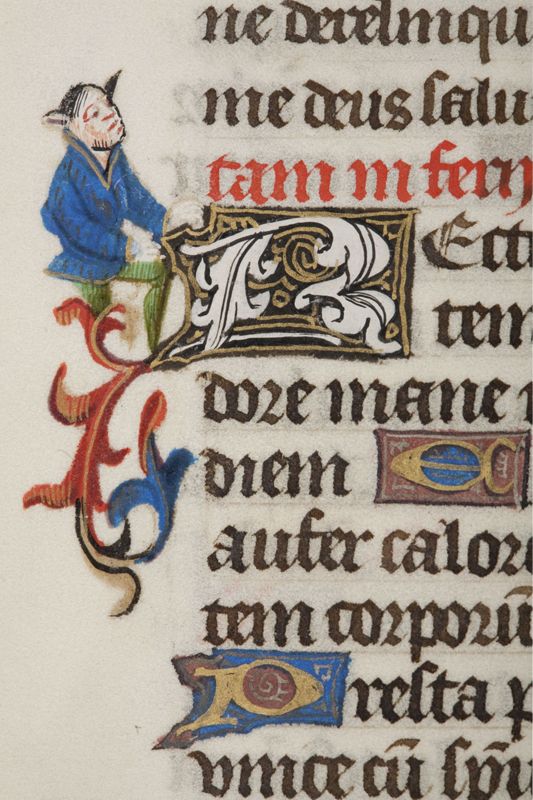 ne derelinqu
me deus salu
tam in feri
REct
tem
dore mane
diem E
aufer calor
tem corporū
Presta p
vnice cū sp̄u